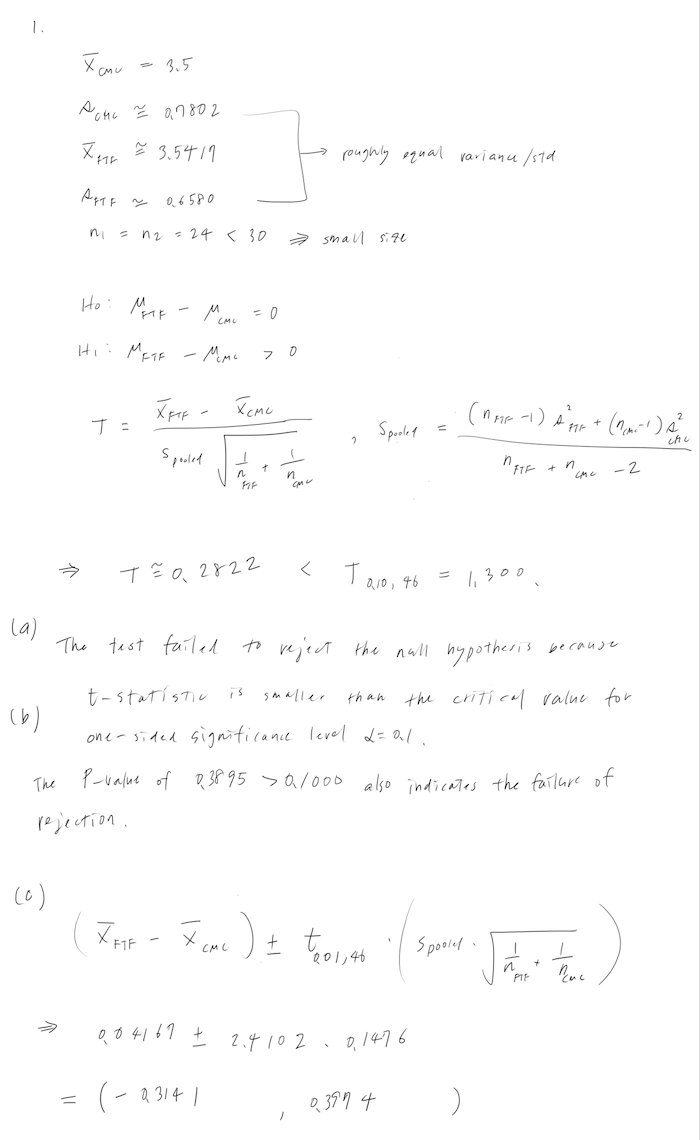 1.
X̄_CMC = 3.5
s_CMC ≅ 0.7802
X̄_FTF ≅ 3.5417 → roughly equal variance/std
s_FTF ≃ 0.6580
n1 = n2 = 24 < 30 ⇒ small size
H0: μ_FTF - μ_CMC = 0
H1: μ_FTF - μ_CMC > 0
T = (X̄_FTF - X̄_CMC) / (s_pooled √(1/n_FTF + 1/n_CMC)) , s_pooled = ((n_FTF - 1) s²_FTF + (n_CMC - 1) s²_CMC) / (n_FTF + n_CMC - 2)
⇒ T ≅ 0.2822 < T_0.10,46 = 1.300.
(a)
The test failed to reject the null hypothesis because
t-statistic is smaller than the critical value for
(b)
one-sided significance level α = 0.1.
The P-value of 0.3895 > 0.1000 also indicates the failure of
rejection.
(c)
(X̄_FTF - X̄_CMC) ± t_0.01,46 · (s_pooled · √(1/n_FTF + 1/n_CMC))
⇒ 0.04167 ± 2.4102 · 0.1476
= (-0.3141 , 0.3974)